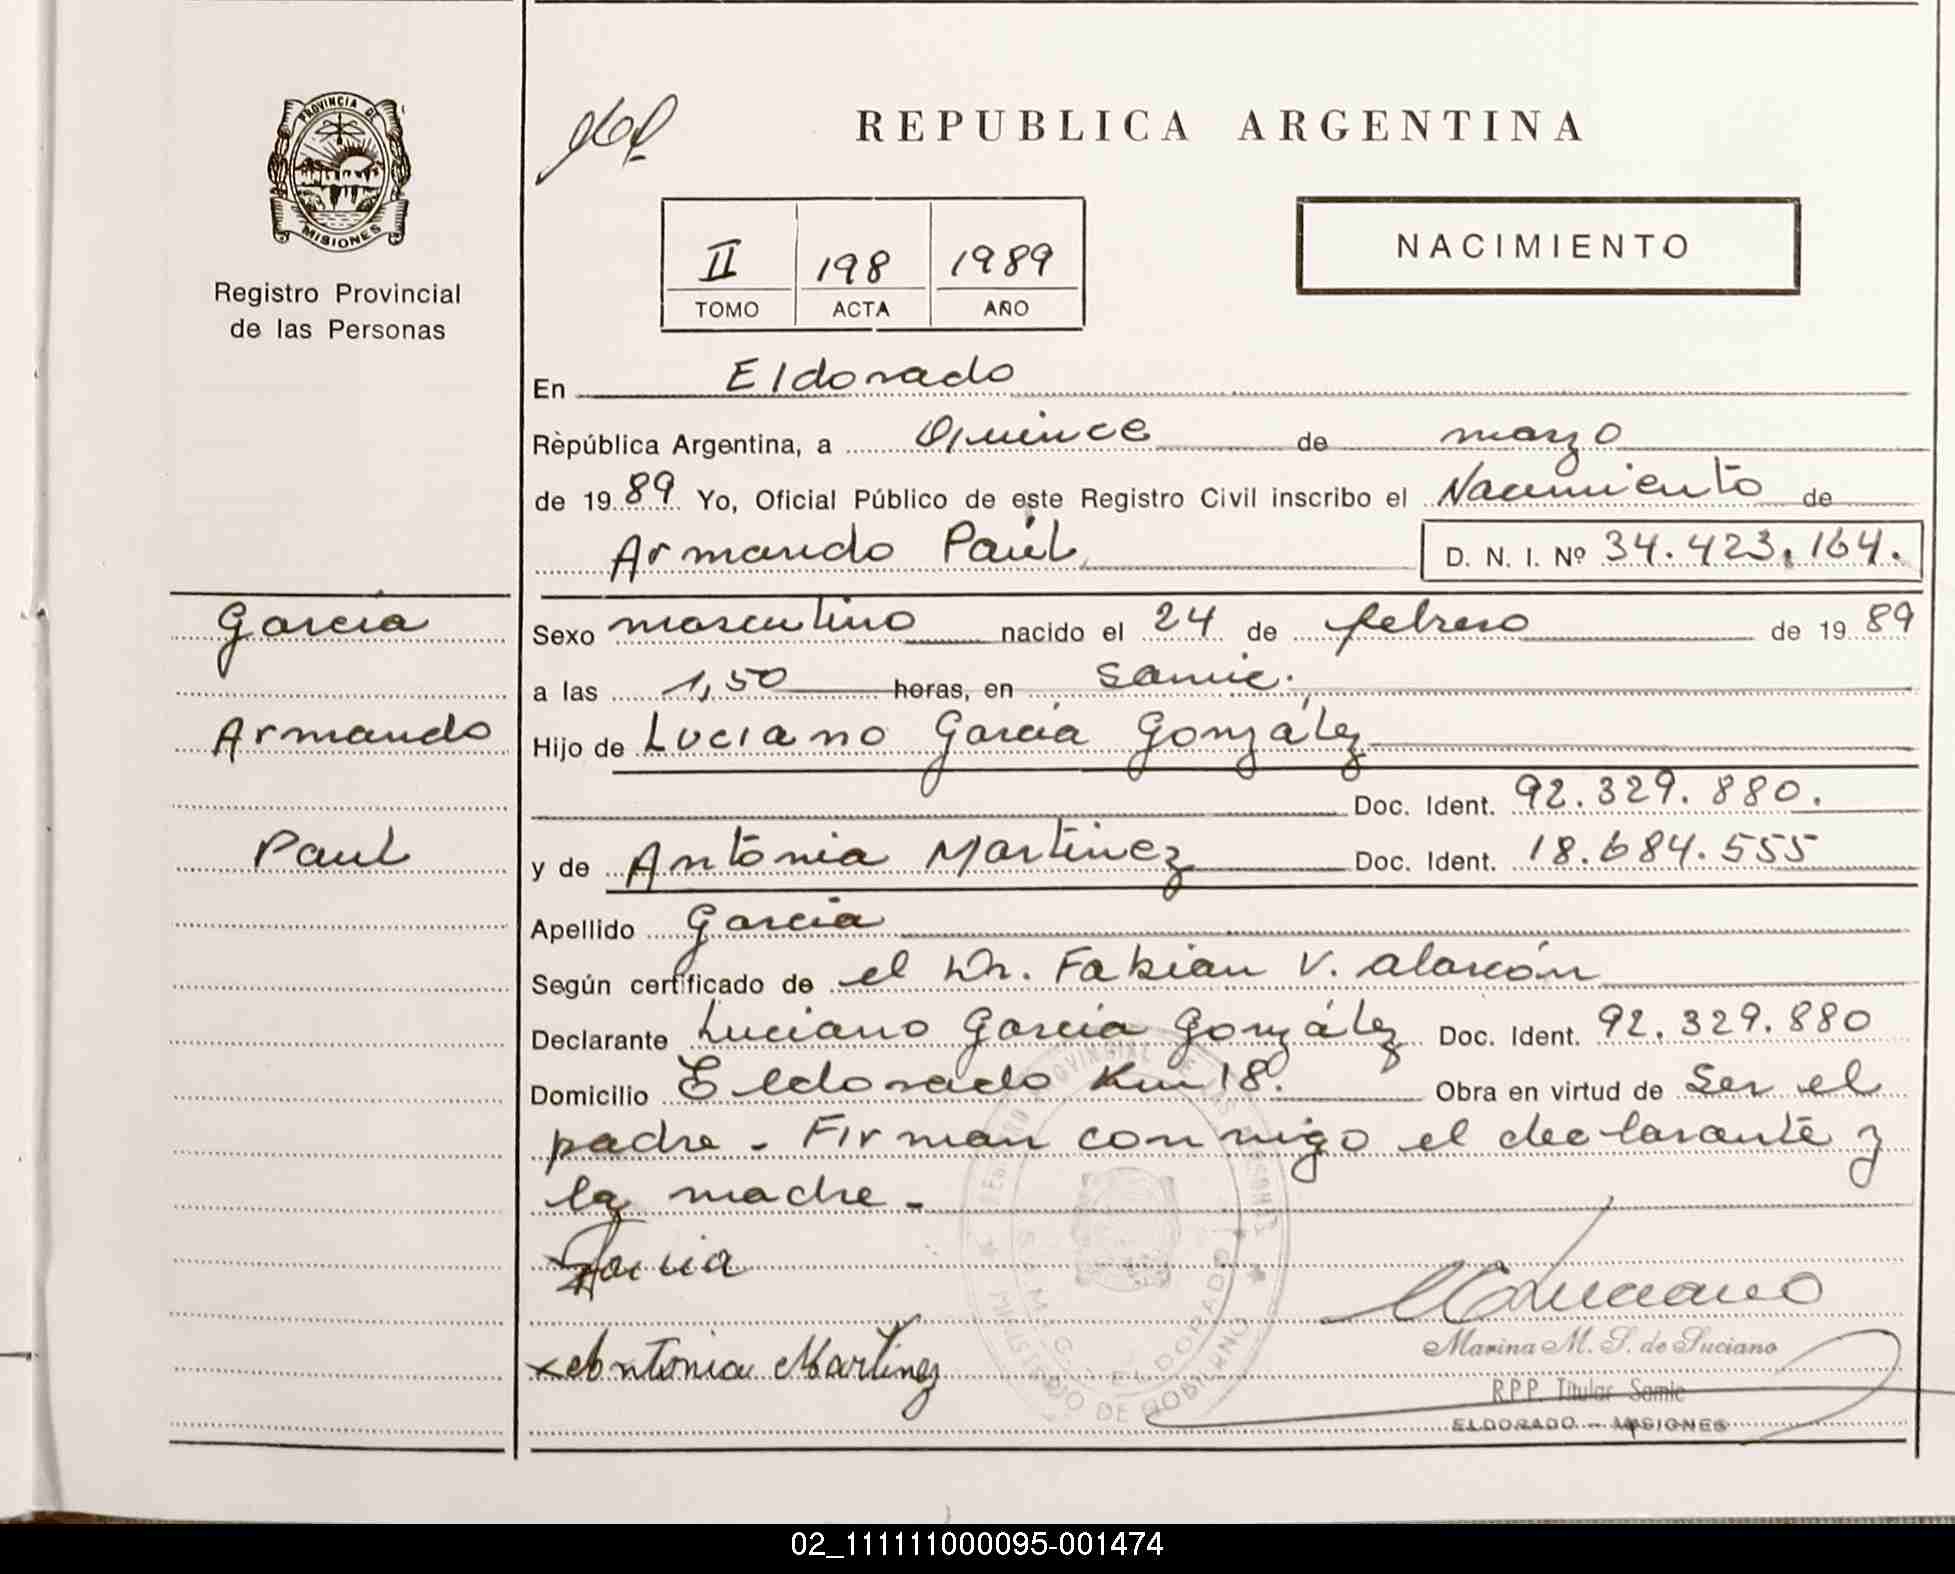 PROVINCIA DE
MISIONES
Registro Provincial
de las Personas
REPUBLICA ARGENTINA
II 198 1989
TOMO ACTA AÑO
NACIMIENTO
En Eldorado
República Argentina, a Quince de marzo
de 19 89 Yo, Oficial Público de este Registro Civil inscribo el Nacimiento de
Armando Paúl D. N. I. Nº 34.423.164.
García
Sexo masculino nacido el 24 de febrero de 19 89
a las 1,50 horas, en Samic.
Armando
Hijo de Luciano García González
Doc. Ident. 92.329.880.
Paul
y de Antonia Martinez Doc. Ident. 18.684.555
Apellido García
Según certificado de el Dr. Fabian V. Alarcón
Declarante Luciano García González Doc. Ident. 92.329.880
Domicilio Eldorado Km 18. Obra en virtud de Ser el
padre - Firman conmigo el declarante y
la madre -
Garcia
x Antonia Martinez
Marina M. S. de Luciano
R.P.P. Titular Samic
ELDORADO - MISIONES
MINISTERIO DE GOBIERNO
ELDORADO
02_111111000095-001474